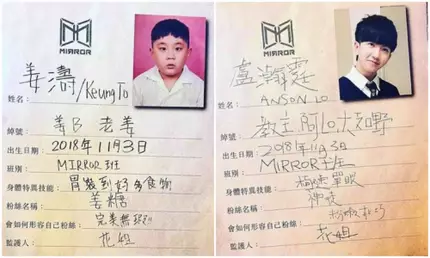 MIRROR
姜濤/KeungTo
姓名：
綽號： 姜B 老姜
出生日期： 2018年11月3日
班別： MIRROR班
身體特異技能： 胃裝到好多食物
粉絲名稱： 姜糖
會如何形容自己粉絲： 完美無瑕!!
監護人： 花姐
MIRROR
盧瀚霆
姓名： ANSON LO
綽號： 教主 阿Lo 大知野
出生日期： 2018年11月3日
班別： MIRROR班
身體特異技能： 單眼
粉絲名稱： 神徒
會如何形容自己粉絲：
監護人： 花姐